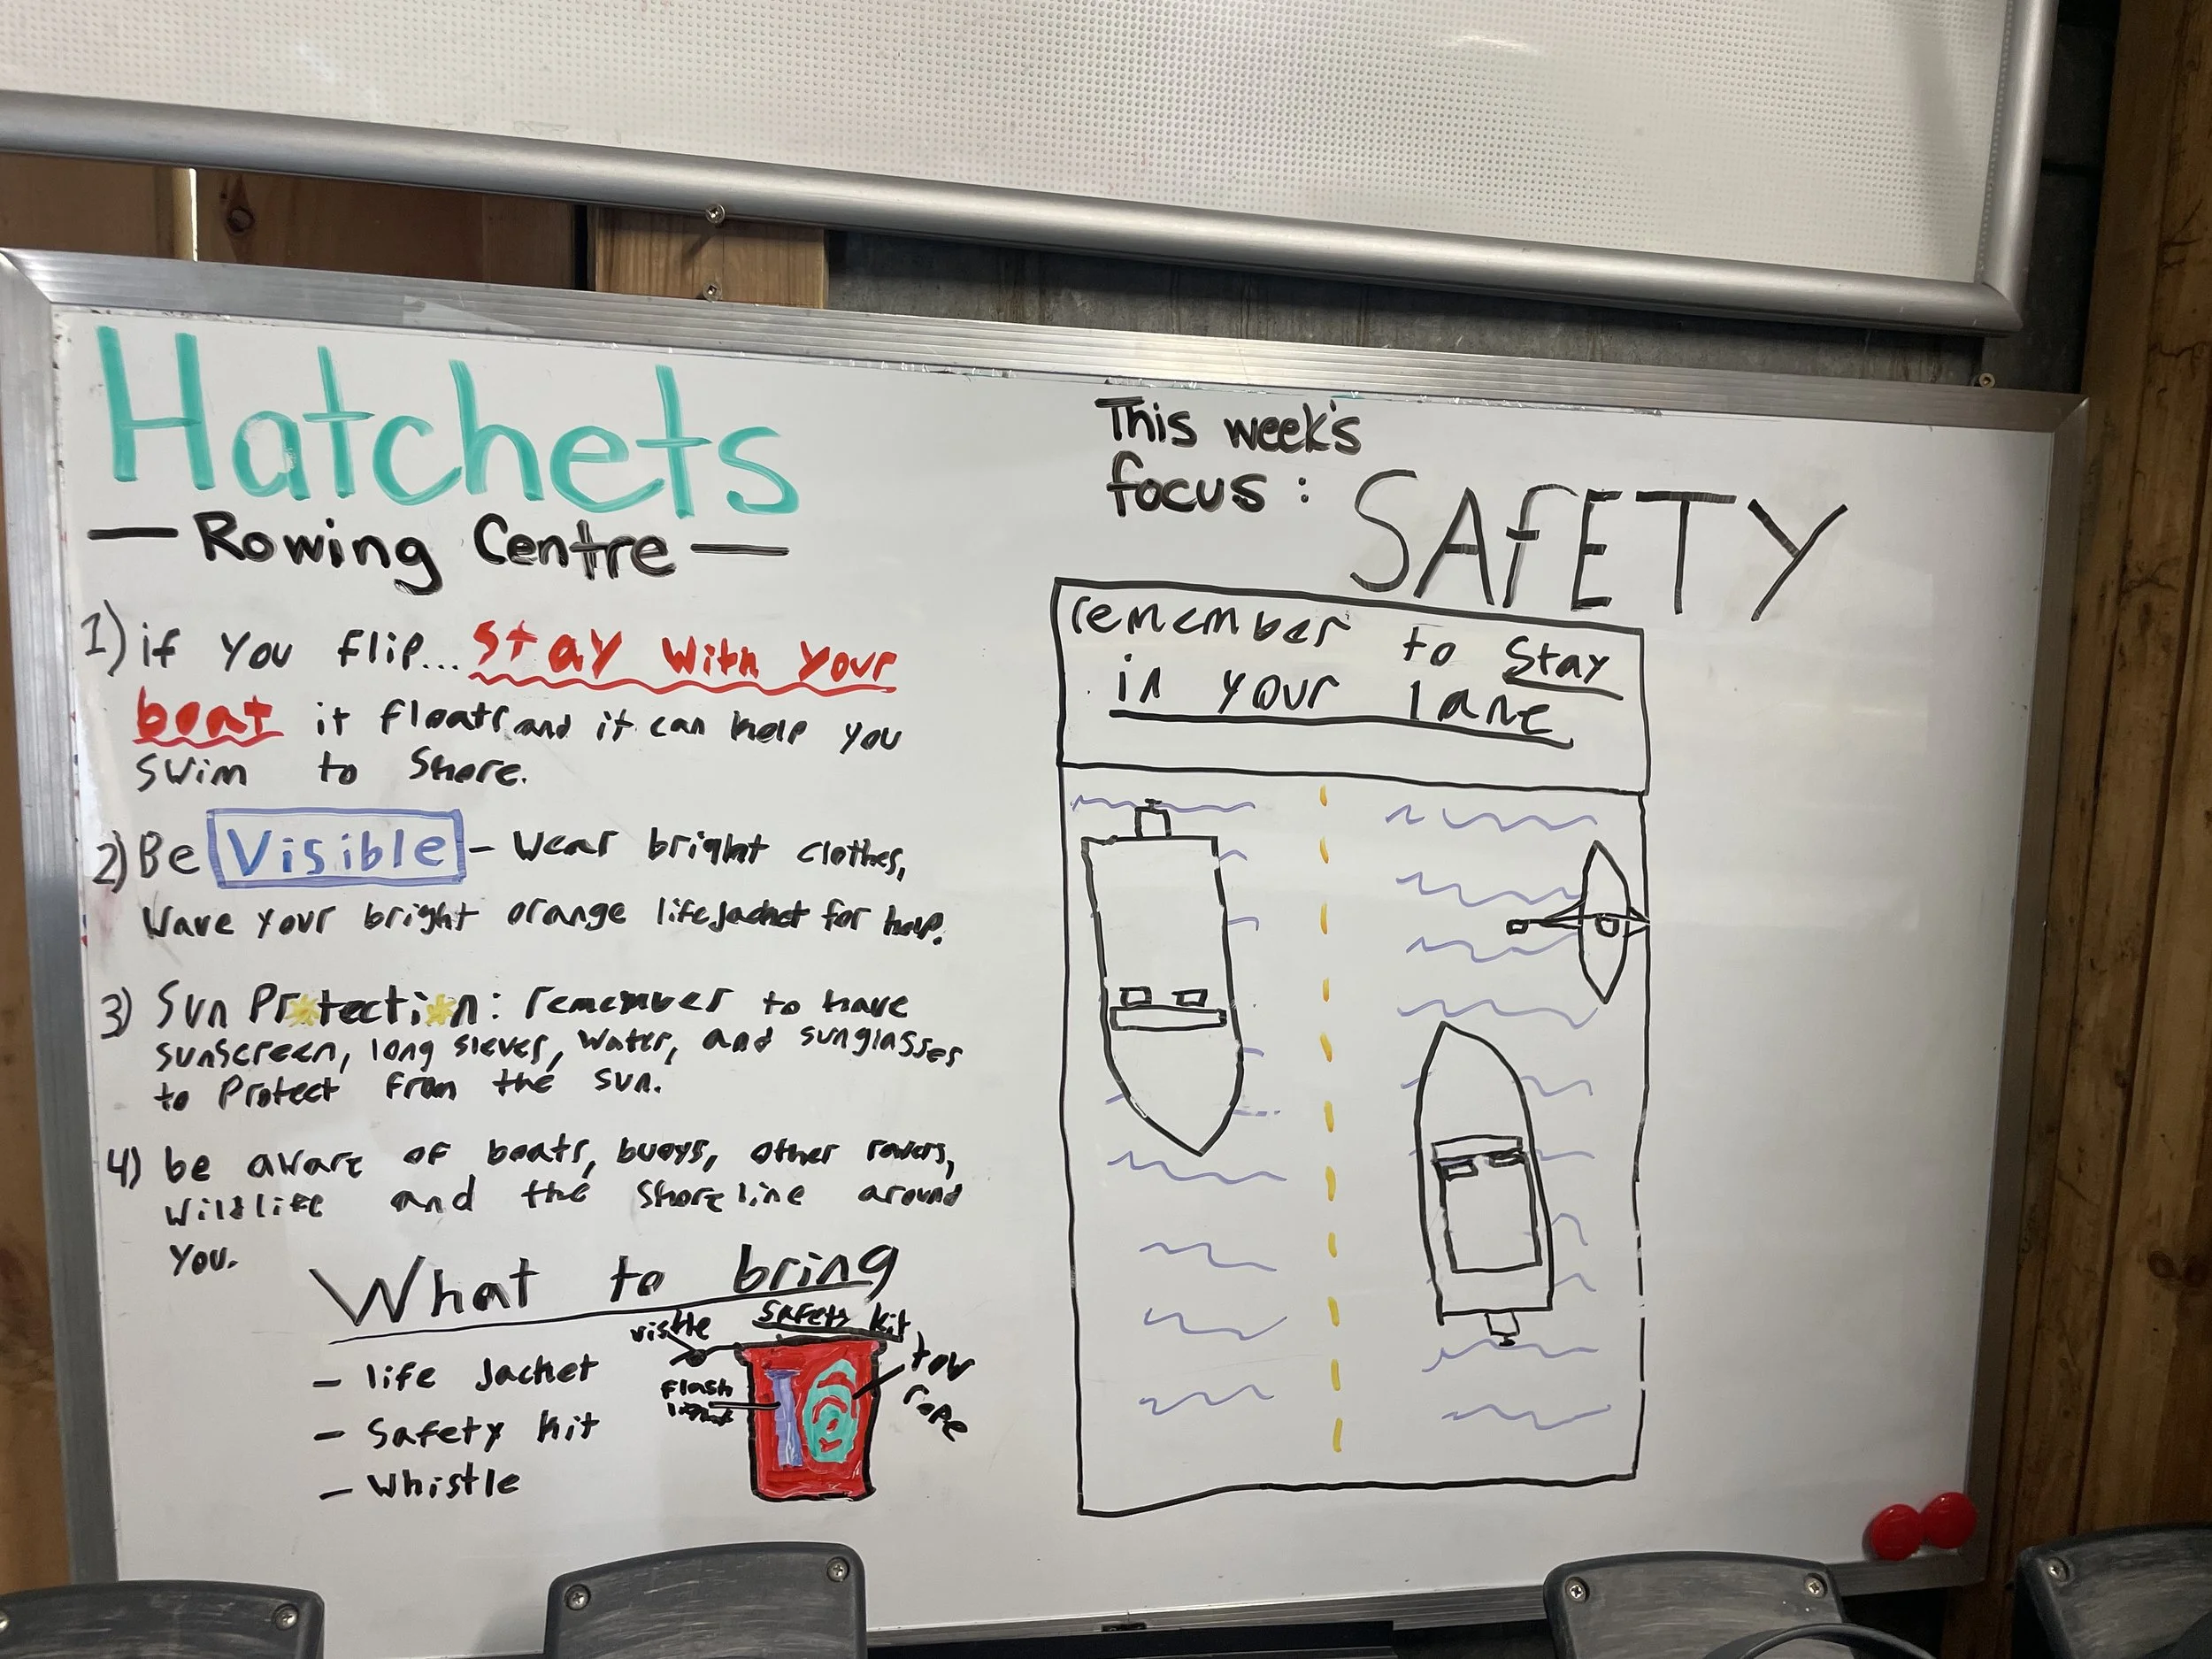 Hatchets
— Rowing Centre —
1) if you flip... stay with your
boat it floats and it can help you
swim to shore.
2) Be Visible - wear bright clothes,
Wave your bright orange lifejacket for help.
3) Sun Protection: remember to have
sunscreen, long sleves, water, and sunglasses
to protect from the sun.
4) be aware of boats, buoys, other rowers,
wildlife and the shoreline around
you.
What to bring
- life Jacket
- Safety kit
- Whistle
Safety kit
vistle
flash
light
tow
rope
This week's
focus: SAfETY
remember to stay
in your lane